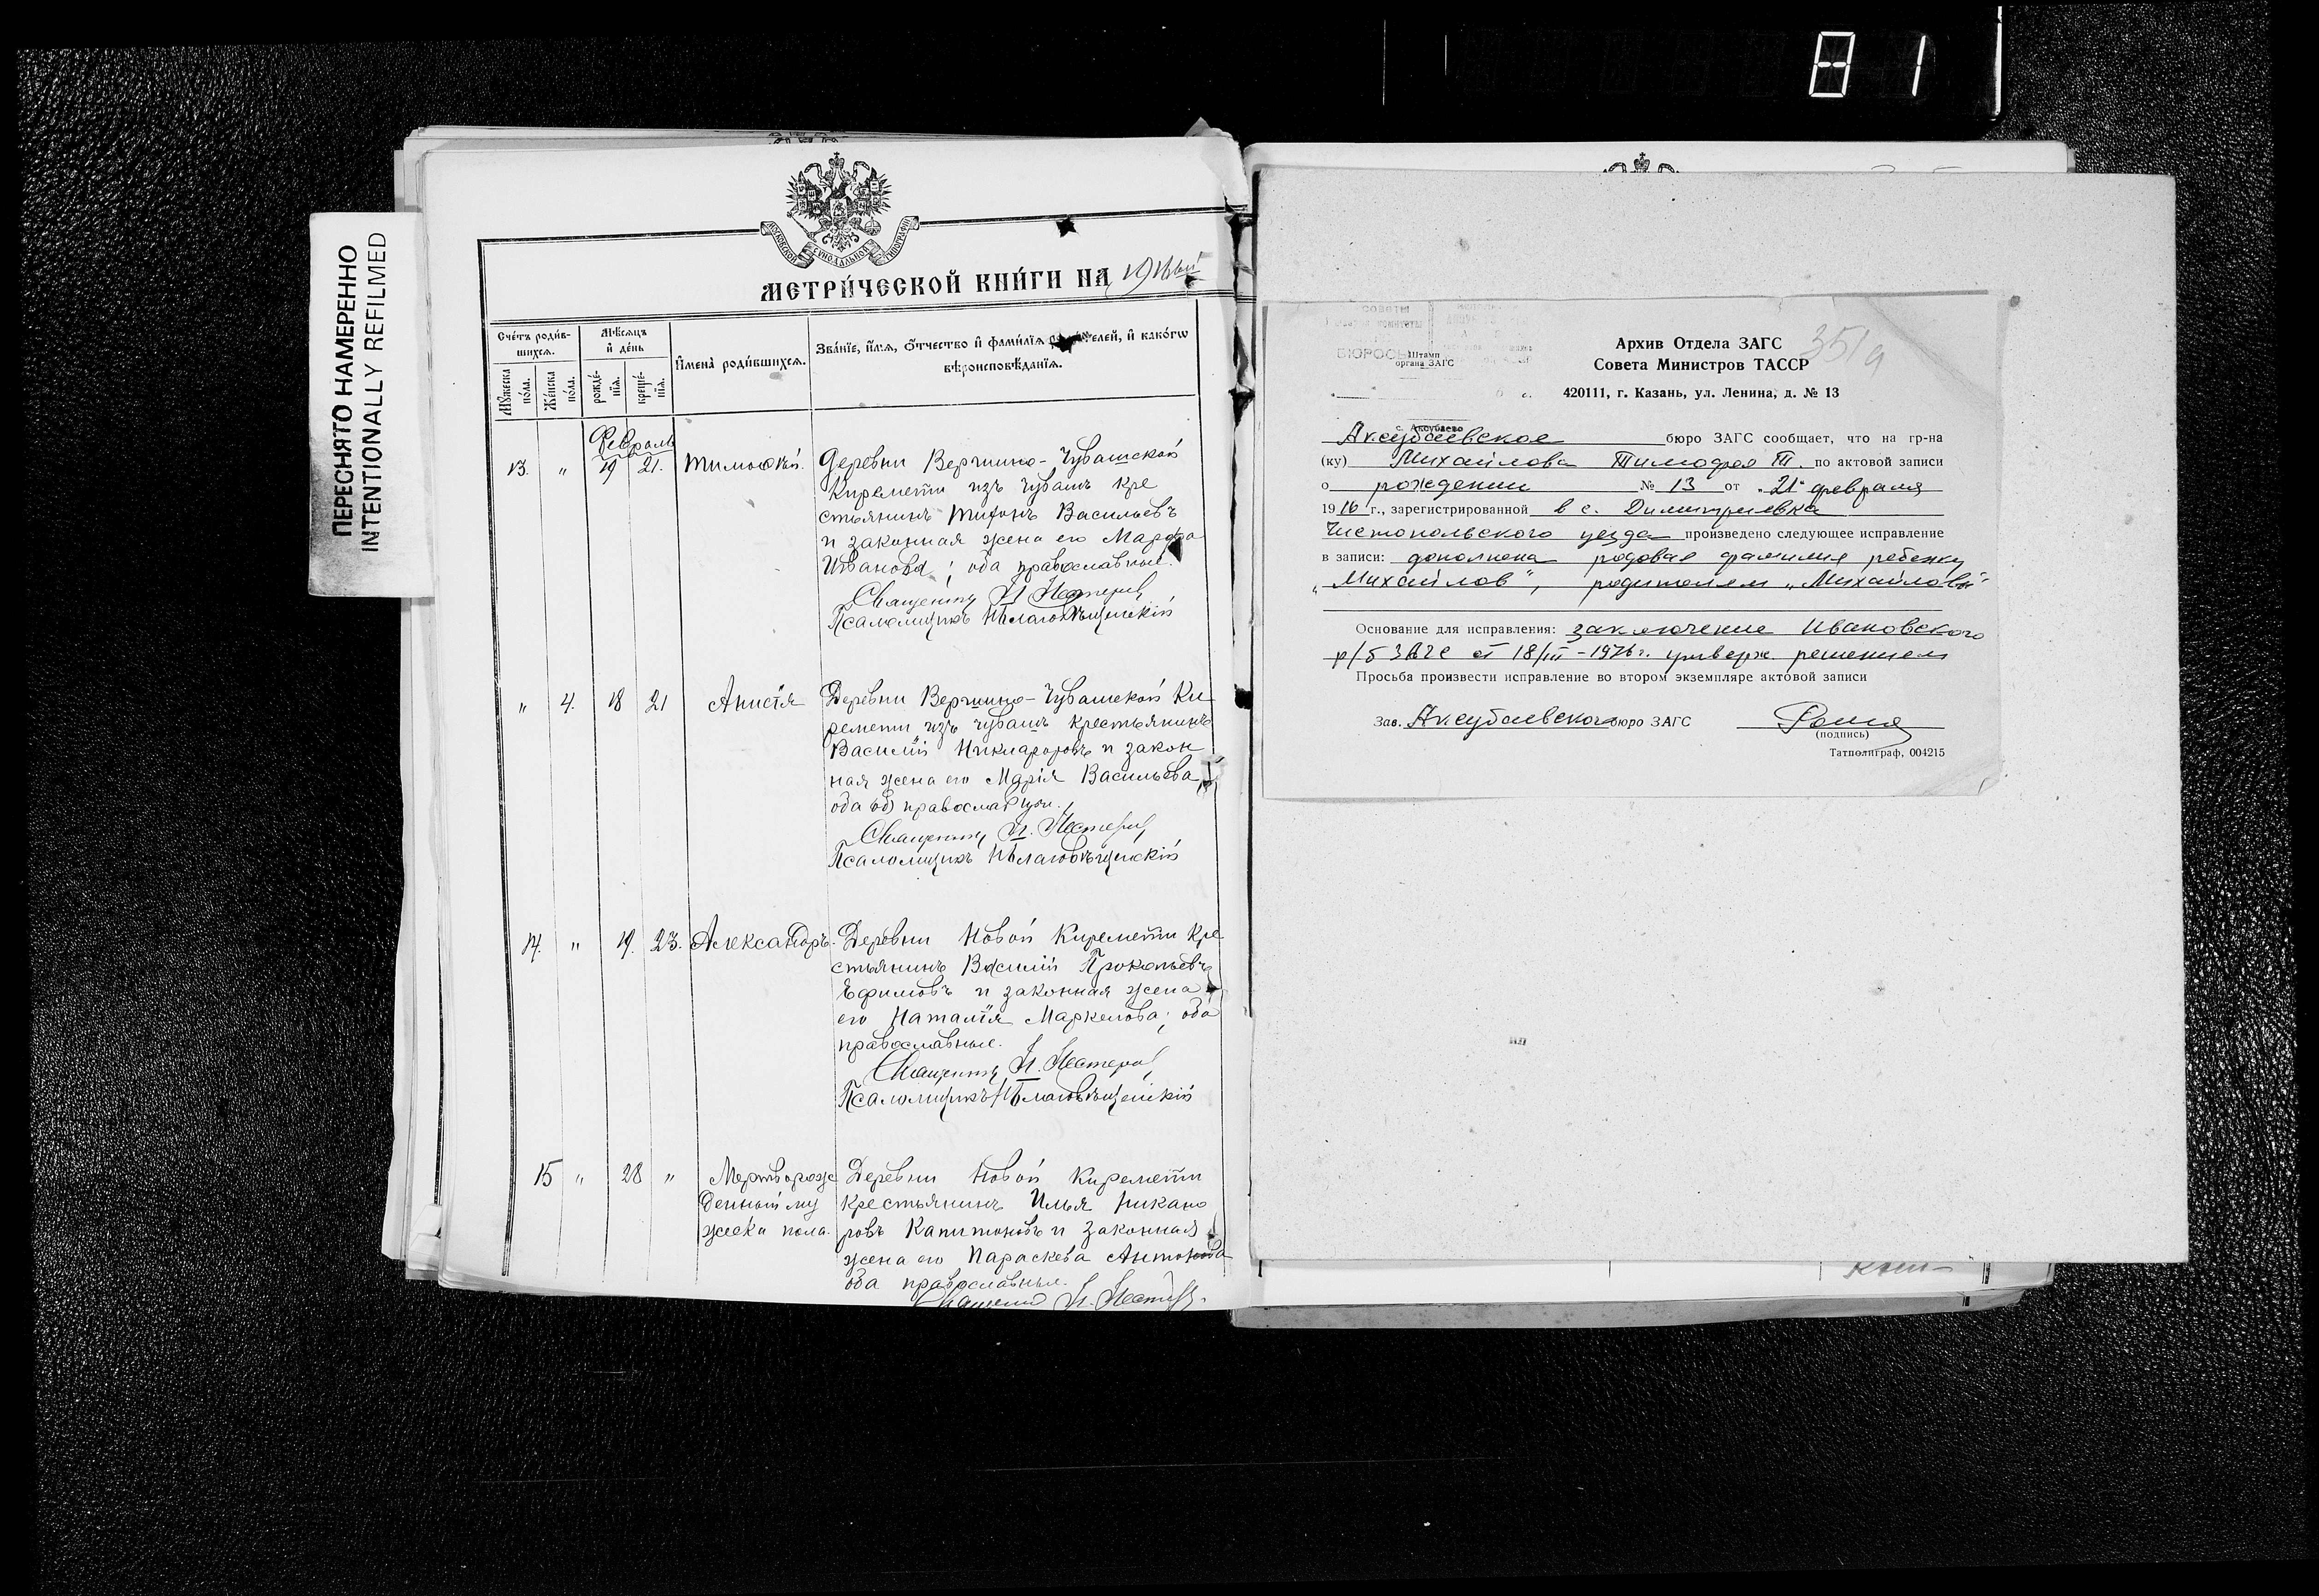 81
ПЕРЕСНЯТО НАМЕРЕННО
INTENTIONALLY REFILMED
МЕТРИ́ЧЕСКОЙ КНИ́ГИ НА 1916ый
Сче́тъ роди́в-
шихся.
Мѣ́сяцъ
и҆ де́нь
И҆мена̀ роди́вшихся.
Зва́нїе, и҆́мя, ѻ҆́тчество и҆ фами́лїя родителей, и҆ како́гѡ
вѣроисповѣ́данїя.
Мꙋжеска
по́ла.
Же́нска
по́ла.
рожде́-
нїя.
креще́-
нїя.
Февраль
13. " 19 21. Тимоѳей. Деревни Вершино-Чувашской
Киремети изъ чувашъ кре
стьянинъ Тифонъ Васильевъ
и законная жена его Марфа
Иванова; оба православные.
Священникъ И Нестеровъ
Псаломщикъ Н Благовѣщенскій
" 4. 18 21 Анисія Деревни Вершино-Чувашской Ки
ремети изъ чувашъ крестьянинъ
Василій Никифоровъ и закон
ная жена его Марія Васильева
оба православные.
Священникъ И. Нестеровъ
Псаломщикъ Н Благовѣщенскій
14. " 19. 23. Александръ. Деревни Новой Киремети кре
стьянинъ Василій Прокопьевъ
Ефимовъ и законная жена
его Наталія Маркелова; оба
православные.
Священникъ И. Нестеровъ
Псаломщикъ Н Благовѣщенскій
15 " 28 " Мертворож Деревни Новой Киремети
денный му крестьянинъ Илья Никано
жска пола. ровъ Капитоновъ и законная
жена его Параскева Антонова
оба православные.
Священникъ И. Нестеровъ.
351а
Архив Отдела ЗАГС
Совета Министров ТАССР
420111, г. Казань, ул. Ленина, д. № 13
Штамп
органа ЗАГС
с. Аксубаево
Аксубаевское бюро ЗАГС сообщает, что на гр-на
(ку) Михайлова Тимофея Т. по актовой записи
о рождении № 13 от „21" февраля
1916 г., зарегистрированной в с. Димитриевка
Чистопольского уезда произведено следующее исправление
в записи: дополнена родовая фамилия ребенку
„Михайлов", родителям „Михайловы"
Основание для исправления: заключение Ивановского
р/б ЗАГС от 18/III-1976г. утверж. решением
Просьба произвести исправление во втором экземпляре актовой записи
Зав. Аксубаевского бюро ЗАГС
(подпись)
Татполиграф, 004215